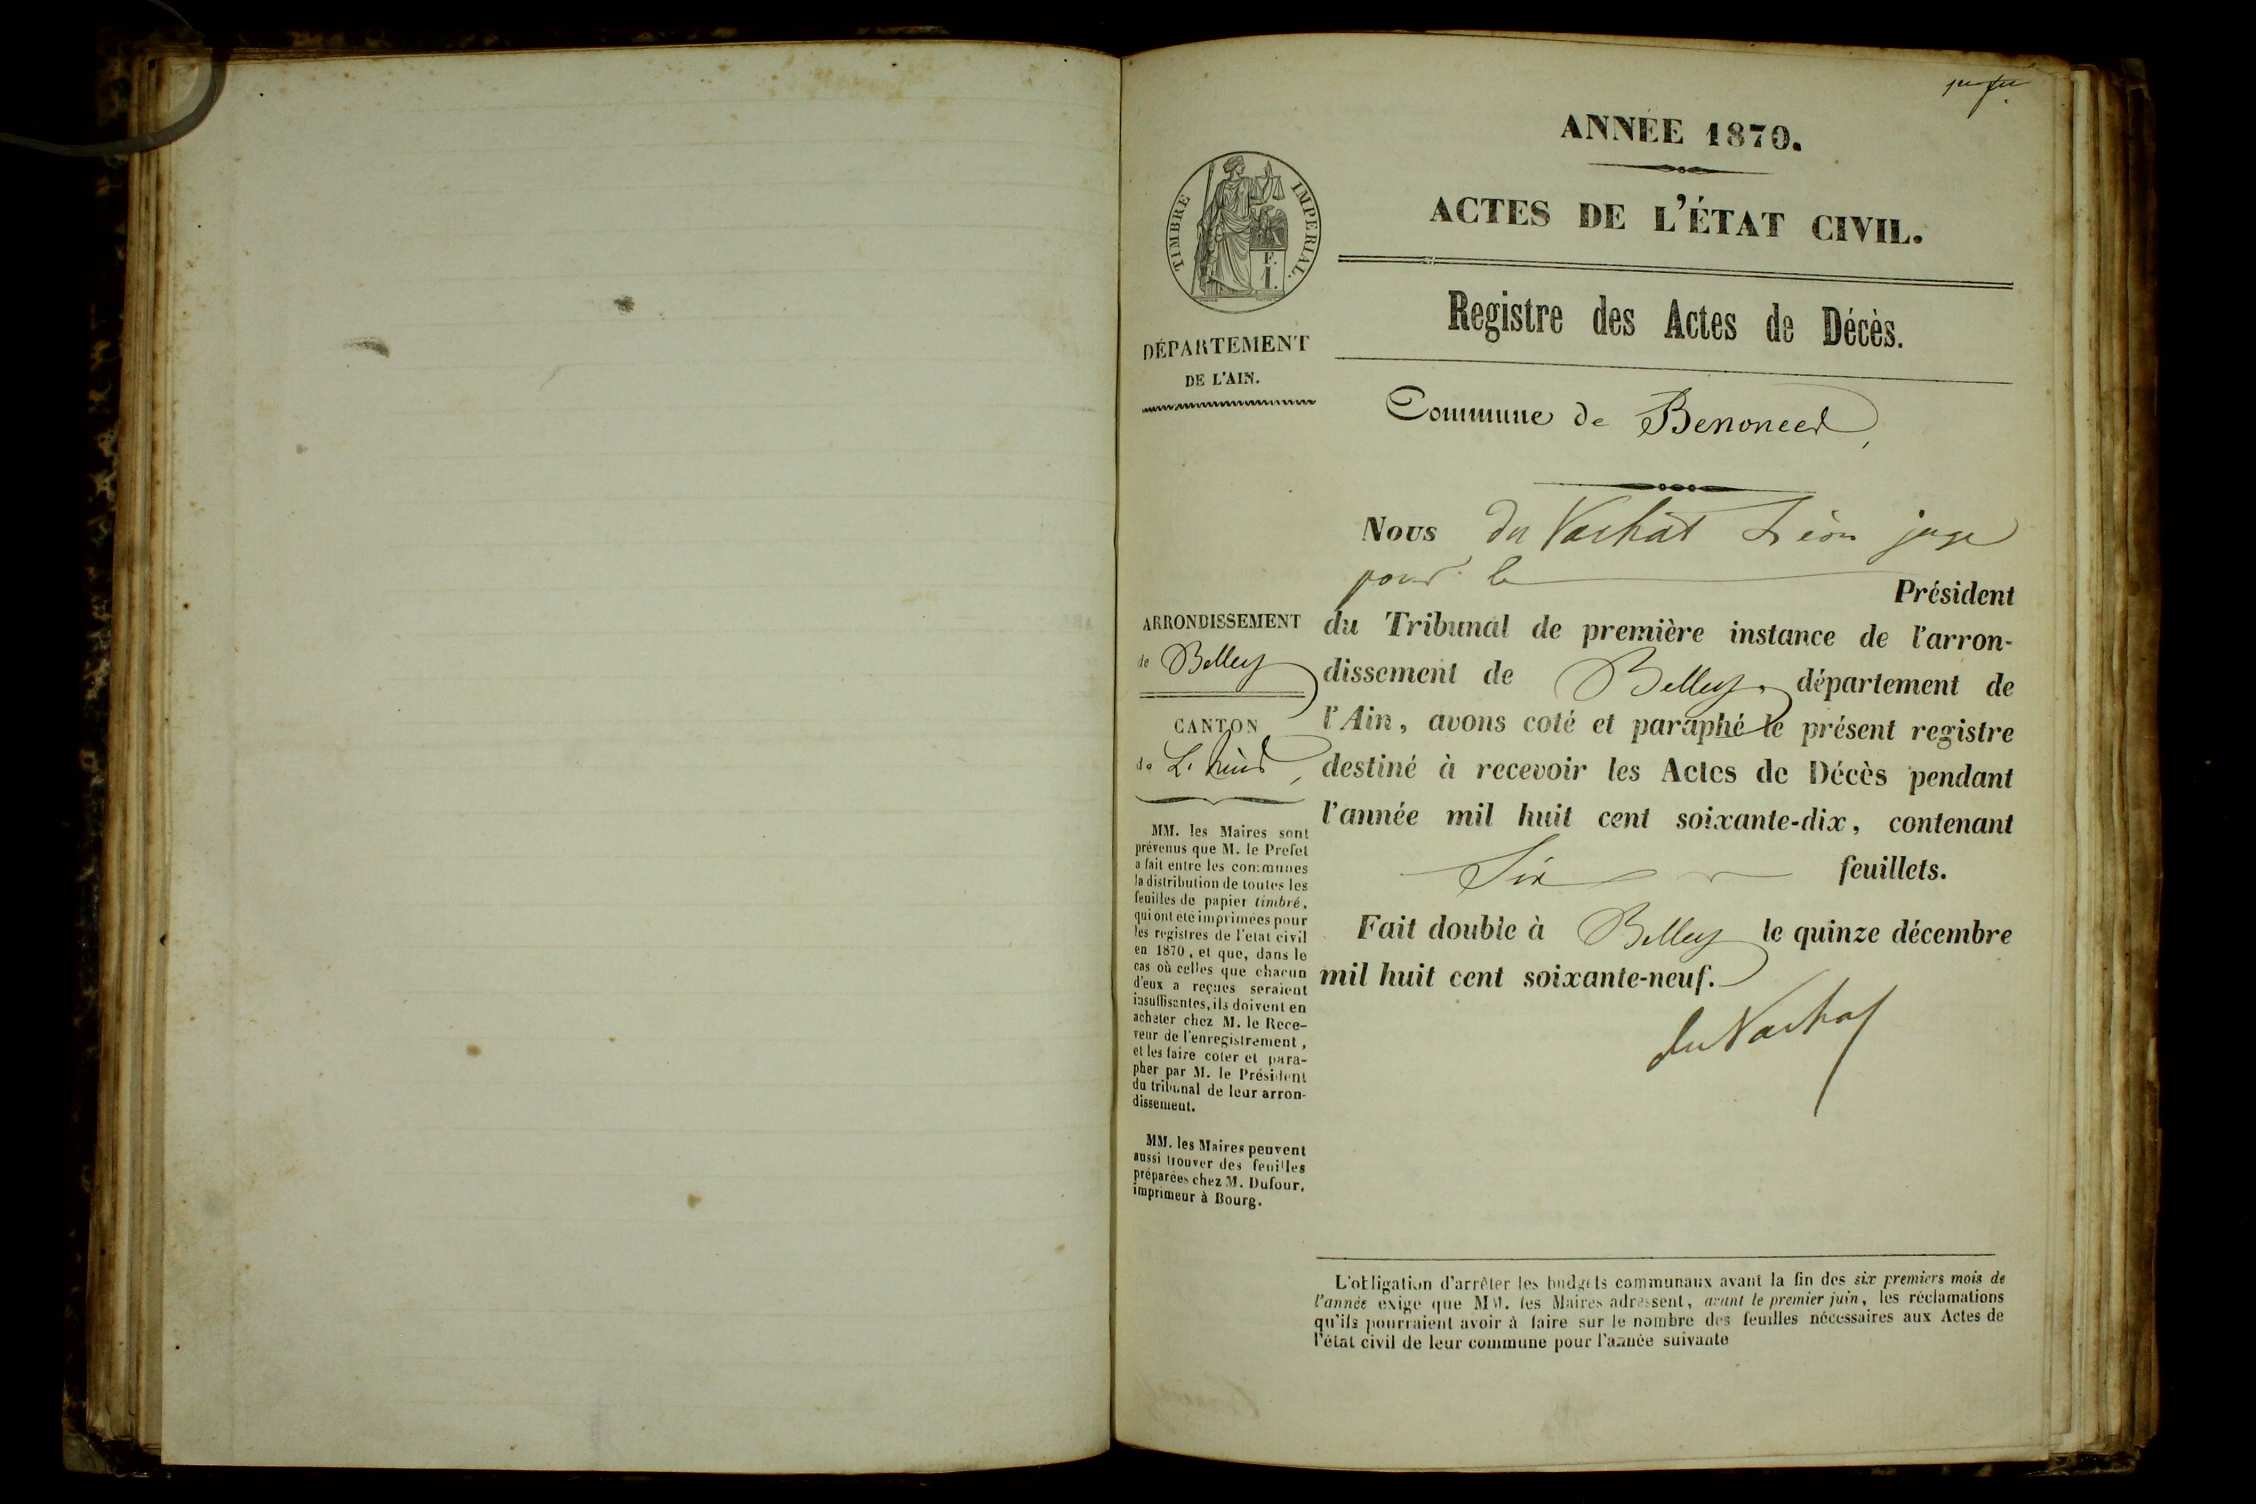 ANNÉE 1870.
ACTES DE L'ÉTAT CIVIL.
TIMBRE IMPERIAL.
Registre des Actes de Décès.
DÉPARTEMENT
DE L'AIN.
Commune de Benonces
Nous du Vachat Léon juge
pour le Président
ARRONDISSEMENT
de Belley
CANTON
de
du Tribunal de première instance de l'arron-
dissement de Belley, département de
l'Ain, avons coté et paraphé le présent registre
destiné à recevoir les Actes de Décès pendant
l'année mil huit cent soixante-dix, contenant
Six feuillets.
Fait double à Belley le quinze décembre
mil huit cent soixante-neuf.
du Vachat
MM. les Maires sont
prévenus que M. le Prefet
a fait entre les communes
la distribution de toutes les
feuilles de papier timbré,
qui ont été imprimées pour
les registres de l'etat civil
en 1870, et que, dans le
cas où celles que chacun
d'eux a reçues seraient
insuffisantes, ils doivent en
acheter chez M. le Rece-
veur de l'enregistrement,
et les faire coter et para-
pher par M. le Président
du tribunal de leur arron-
dissement.
MM. les Maires peuvent
aussi trouver des feuilles
préparées chez M. Dufour,
imprimeur à Bourg.
L'obligation d'arrêter les budgets communaux avant la fin des six premiers mois de
l'année exige que MM. les Maires adressent, avant le premier juin, les réclamations
qu'ils pourraient avoir à faire sur le nombre des feuilles nécessaires aux Actes de
l'état civil de leur commune pour l'année suivante